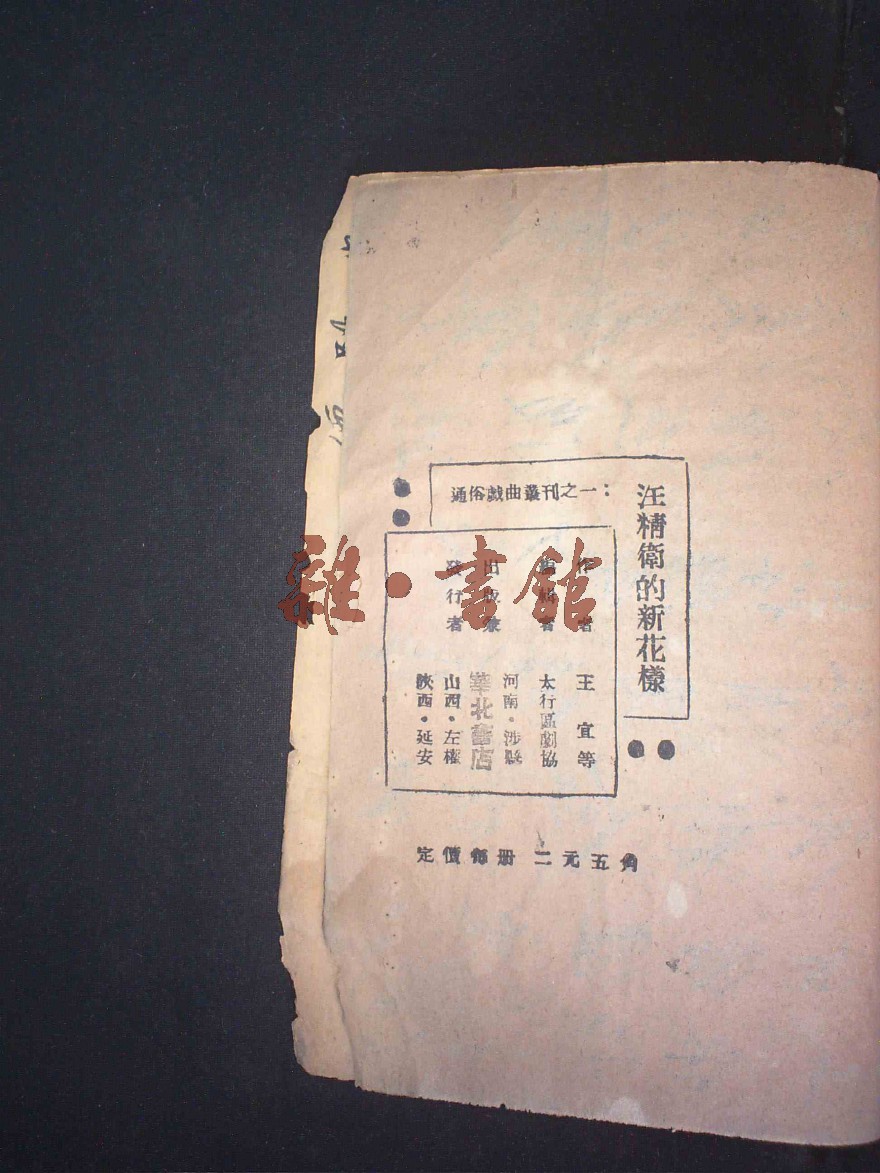 汪精衛的新花樣
通俗戲曲叢刊之一：
作者 王宜等
編輯者 太行區劇協
出版兼發行者 華北書店
河南·涉縣
山西·左權
陝西·延安
定價每册 二元五角
雜·書館